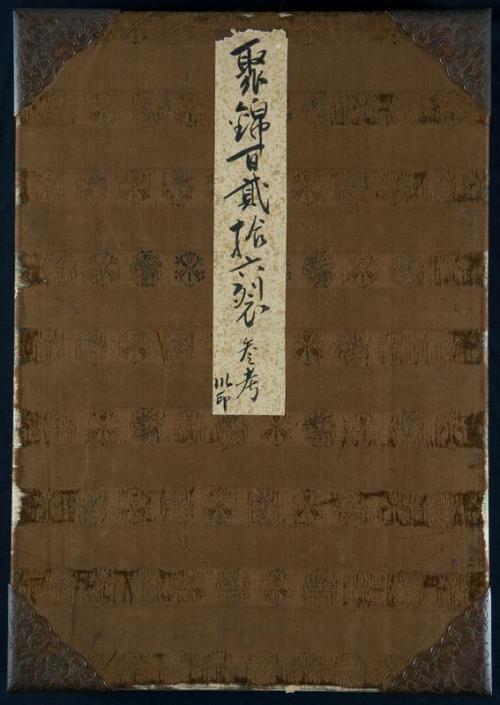 聚錦百貳拾六裂 参考
川印